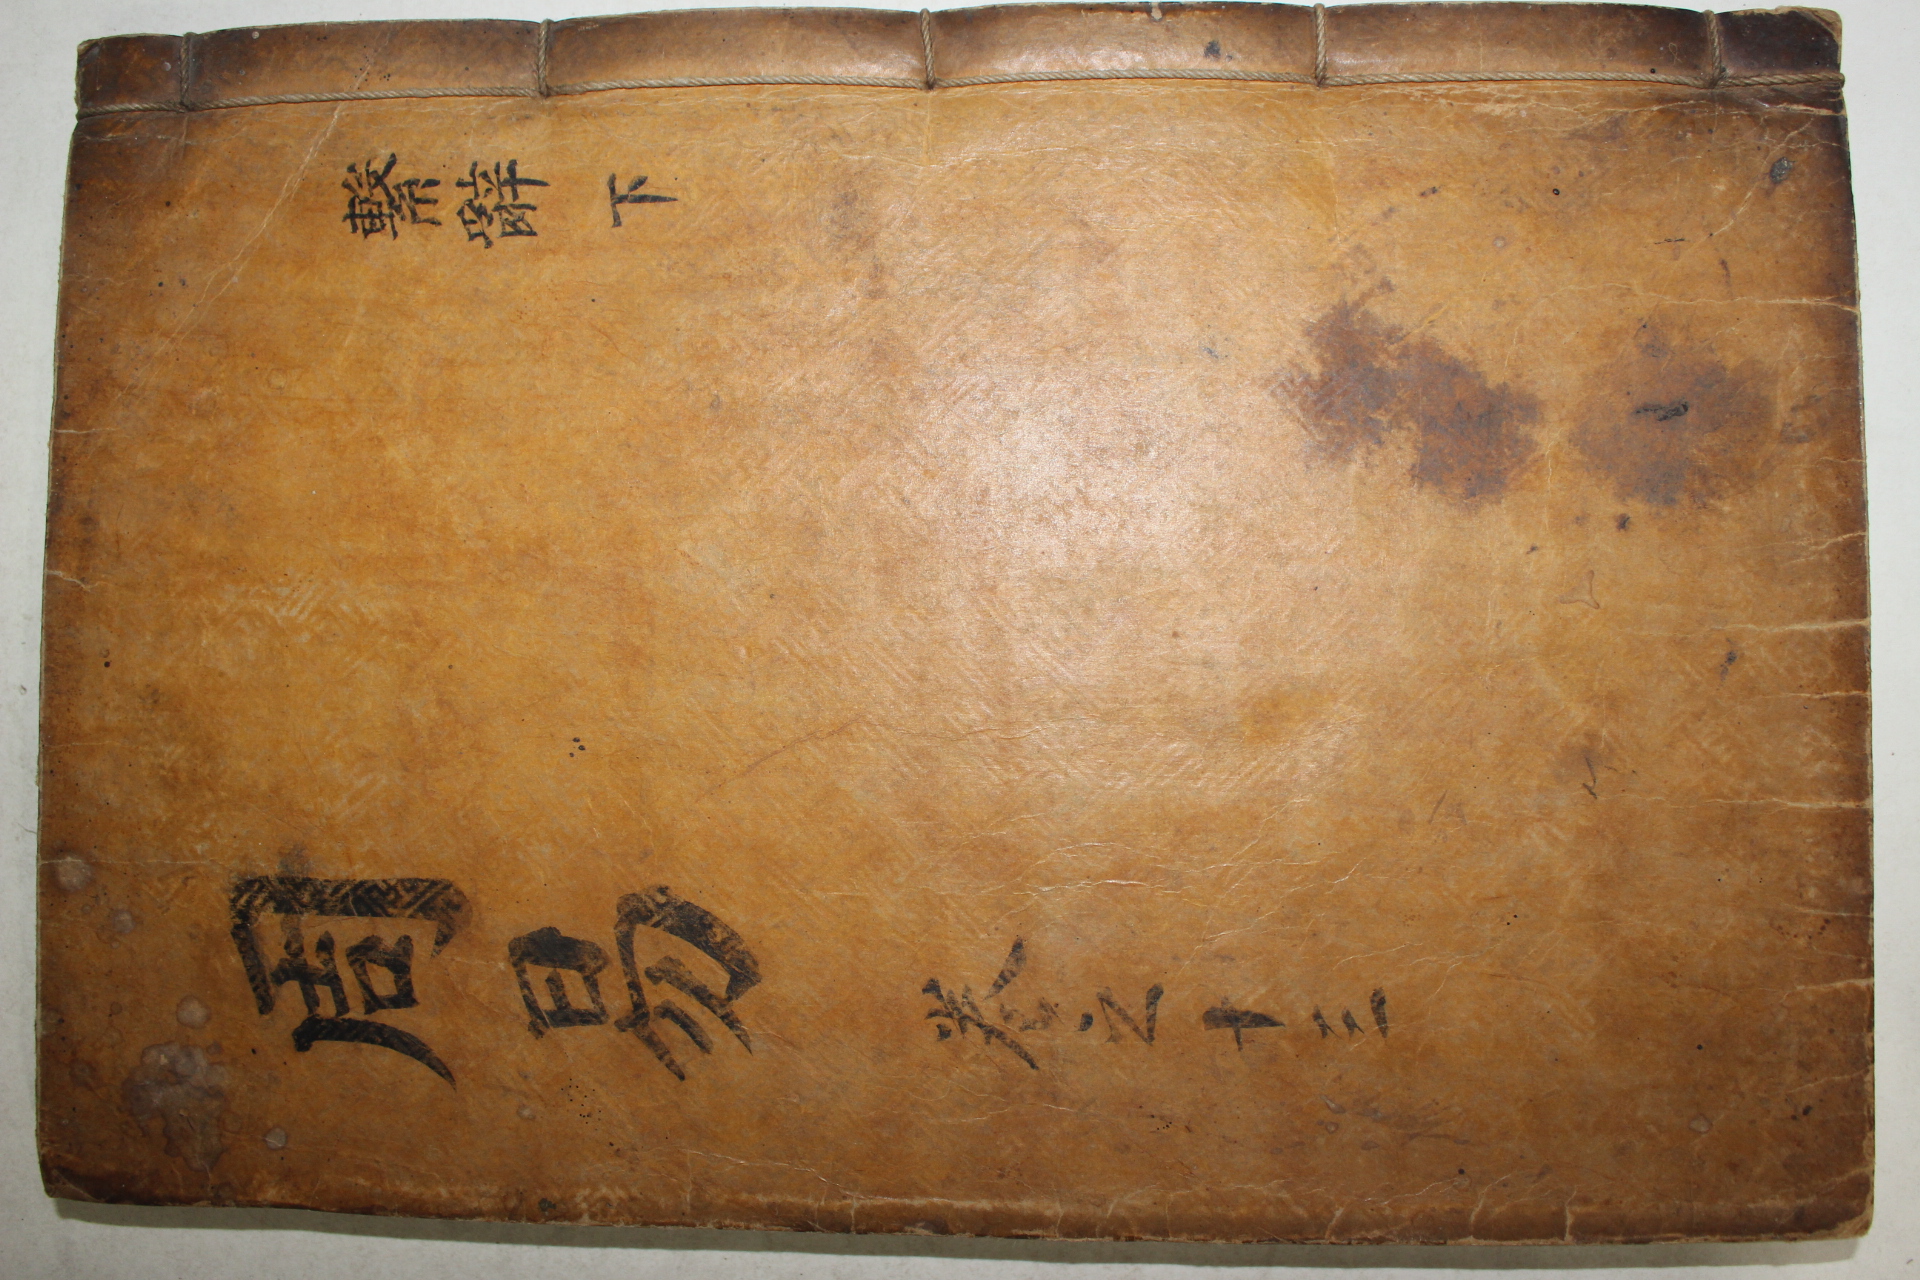 周易 卷之十三
繫辭 下